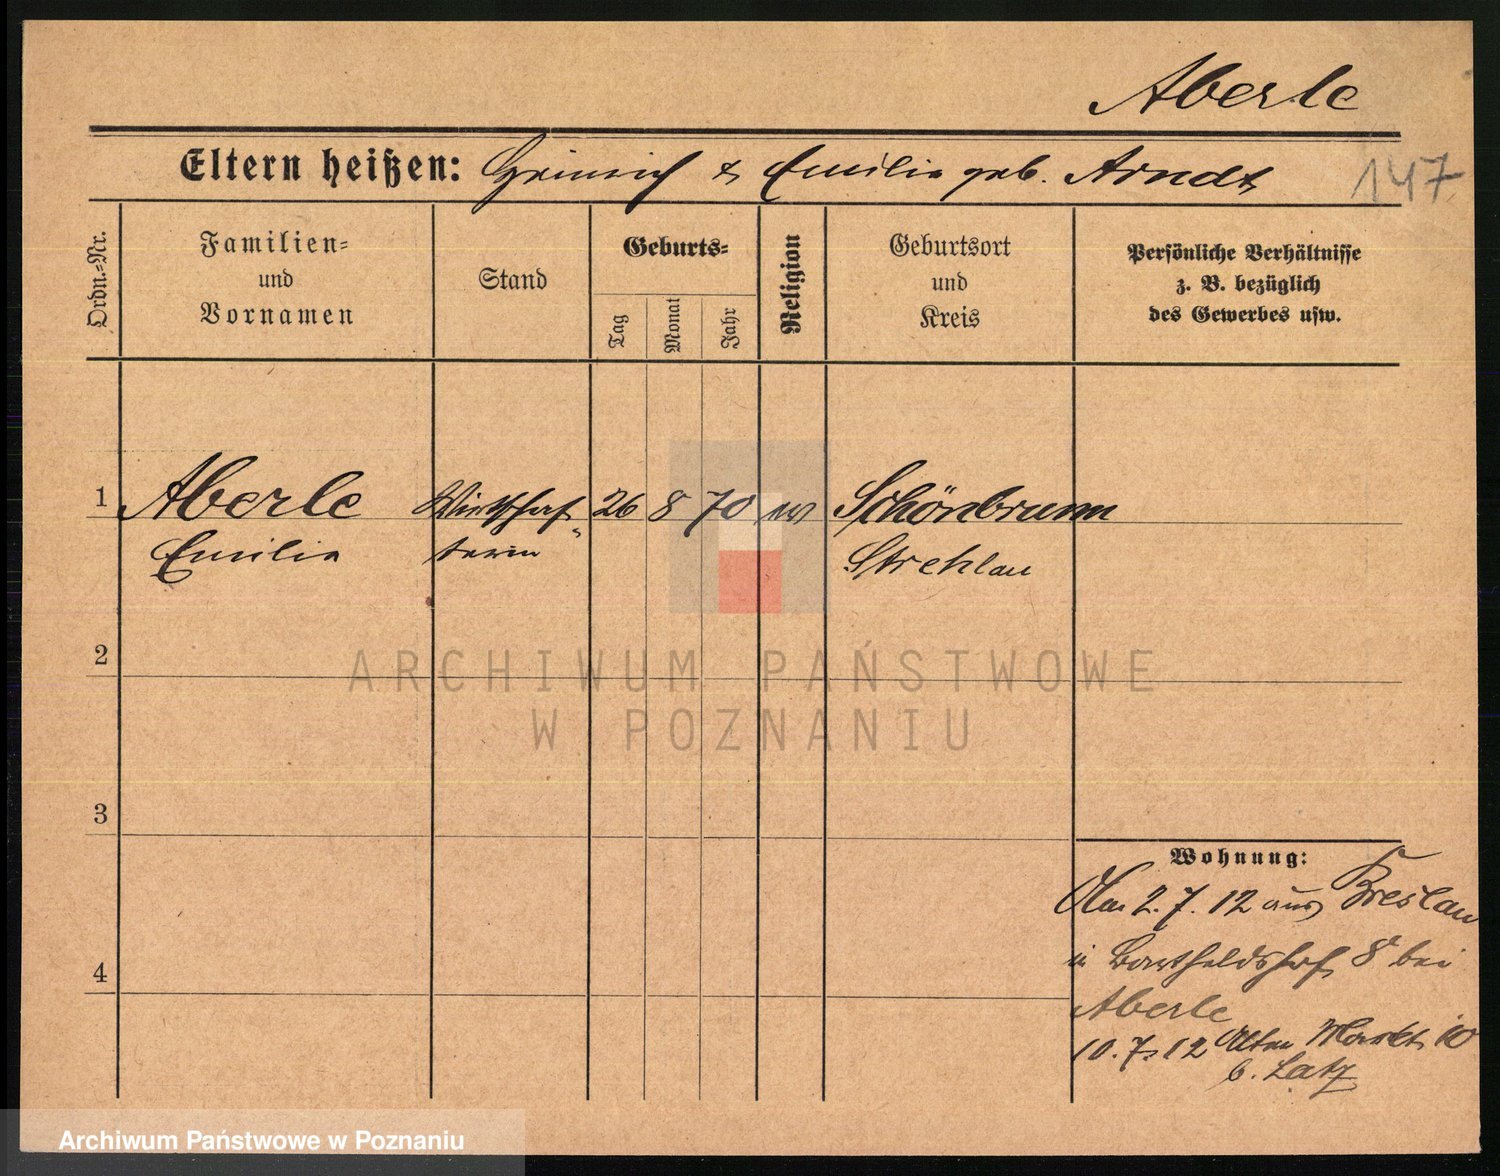 Aberle
Eltern heißen: Heinrich & Emilie geb. Arndt
147
Ordn.=Nr.
Familien=
und
Vornamen
Stand
Geburts=
Tag
Monat
Jahr
Religion
Geburtsort
und
Kreis
Persönliche Verhältnisse
z. B. bezüglich
des Gewerbes usw.
1 Aberle Wirtschaf- 26 8 70 ev Schönbrunn
Emilie terin Strehlau
2
3
4
Wohnung:
2. 7. 12 aus Breslau
Bartholdshof 8 bei
Aberle
10. 7. 12 Alten Markt 10
b. Latz
ARCHIWUM PAŃSTWOWE
W POZNANIU
Archiwum Państwowe w Poznaniu